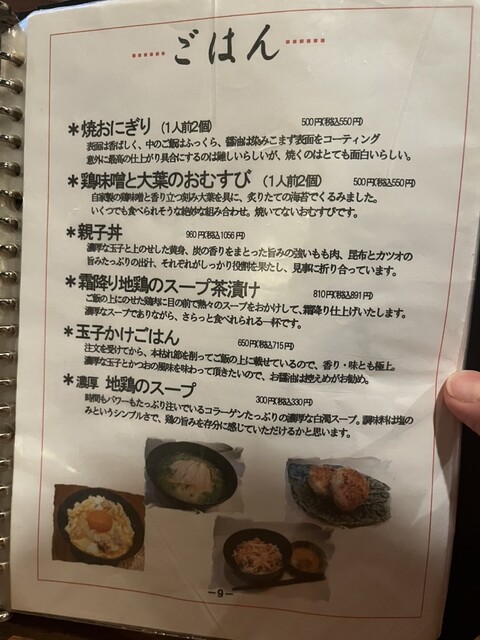 ごはん
＊焼おにぎり（1人前2個） 500円(税込550円)
表面は香ばしく、中のご飯はふっくら、醤油は染みこまず表面をコーティング
意外に最高の仕上がり具合にするのは難しいらしいが、焼くのはとても面白いらしい。
＊鶏味噌と大葉のおむすび（1人前2個） 500円(税込550円)
自家製の鶏味噌と香り立つ刻み大葉を具に、炙りたての海苔でくるみました。
いくつでも食べられそうな絶妙な組み合わせ。焼いてないおむすびです。
＊親子丼 960円(税込1056円)
濃厚な玉子と上のせした黄身、炭の香りをまとった旨みの強いもも肉、昆布とカツオの
旨みたっぷりの出汁、それぞれがしっかり役割を果たし、見事に折り合っています。
＊霜降り地鶏のスープ茶漬け 810円(税込891円)
ご飯の上にのせた鶏肉に目の前で熱々のスープをおかけして、霜降り仕上げいたします。
濃厚なスープでありながら、さらっと食べれられる一杯です。
＊玉子かけごはん 650円(税込715円)
注文を受けてから、本枯れ節を削ってご飯の上に載せているので、香り・味とも極上。
濃厚な玉子とかつおの風味を味わって頂きたいので、お醤油は控えめがお勧め。
＊濃厚 地鶏のスープ 300円(税込330円)
時間もパワーもたっぷり注いでいるコラーゲンたっぷりの濃厚な白濁スープ。調味料は塩の
みというシンプルさで、鶏の旨みを存分に感じていただけるかと思います。
－9－